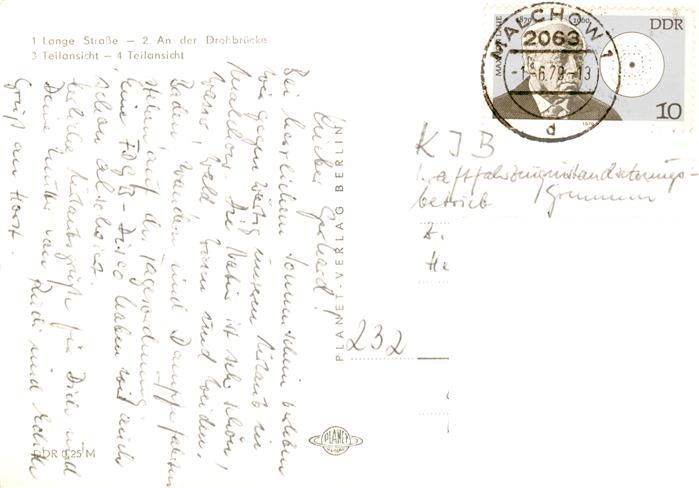 1 Lange Straße – 2 An der Drehbrücke
3 Teilansicht – 4 Teilansicht
Lieber Gerhard!
Bei herrlichem Sonnenschein erleben
wir gegenwärtig unseren Urlaub in
Malchow. Die Natur ist sehr schön,
Wasser, Wald, Wiesen und Weiden.
Baden, Wandern und Dampferfahrten
stehen auf der Tagesordnung.
Eine FDGB-Disco haben wir auch
schon
Urlaubsgrüße für Dich und
Deine Mutter von Rudi und
Gruß an Horst.
DDR 0,25 M
PLANET-VERLAG BERLIN
PLANET
VERLAG
MALCHOW 1
2063
-1.-6.79-13
d
MAX VON LAUE
1879 1960
DDR
10
1979
KIB
Kraftfahrzeuginstandsetzungs-
betrieb Grimmen
232